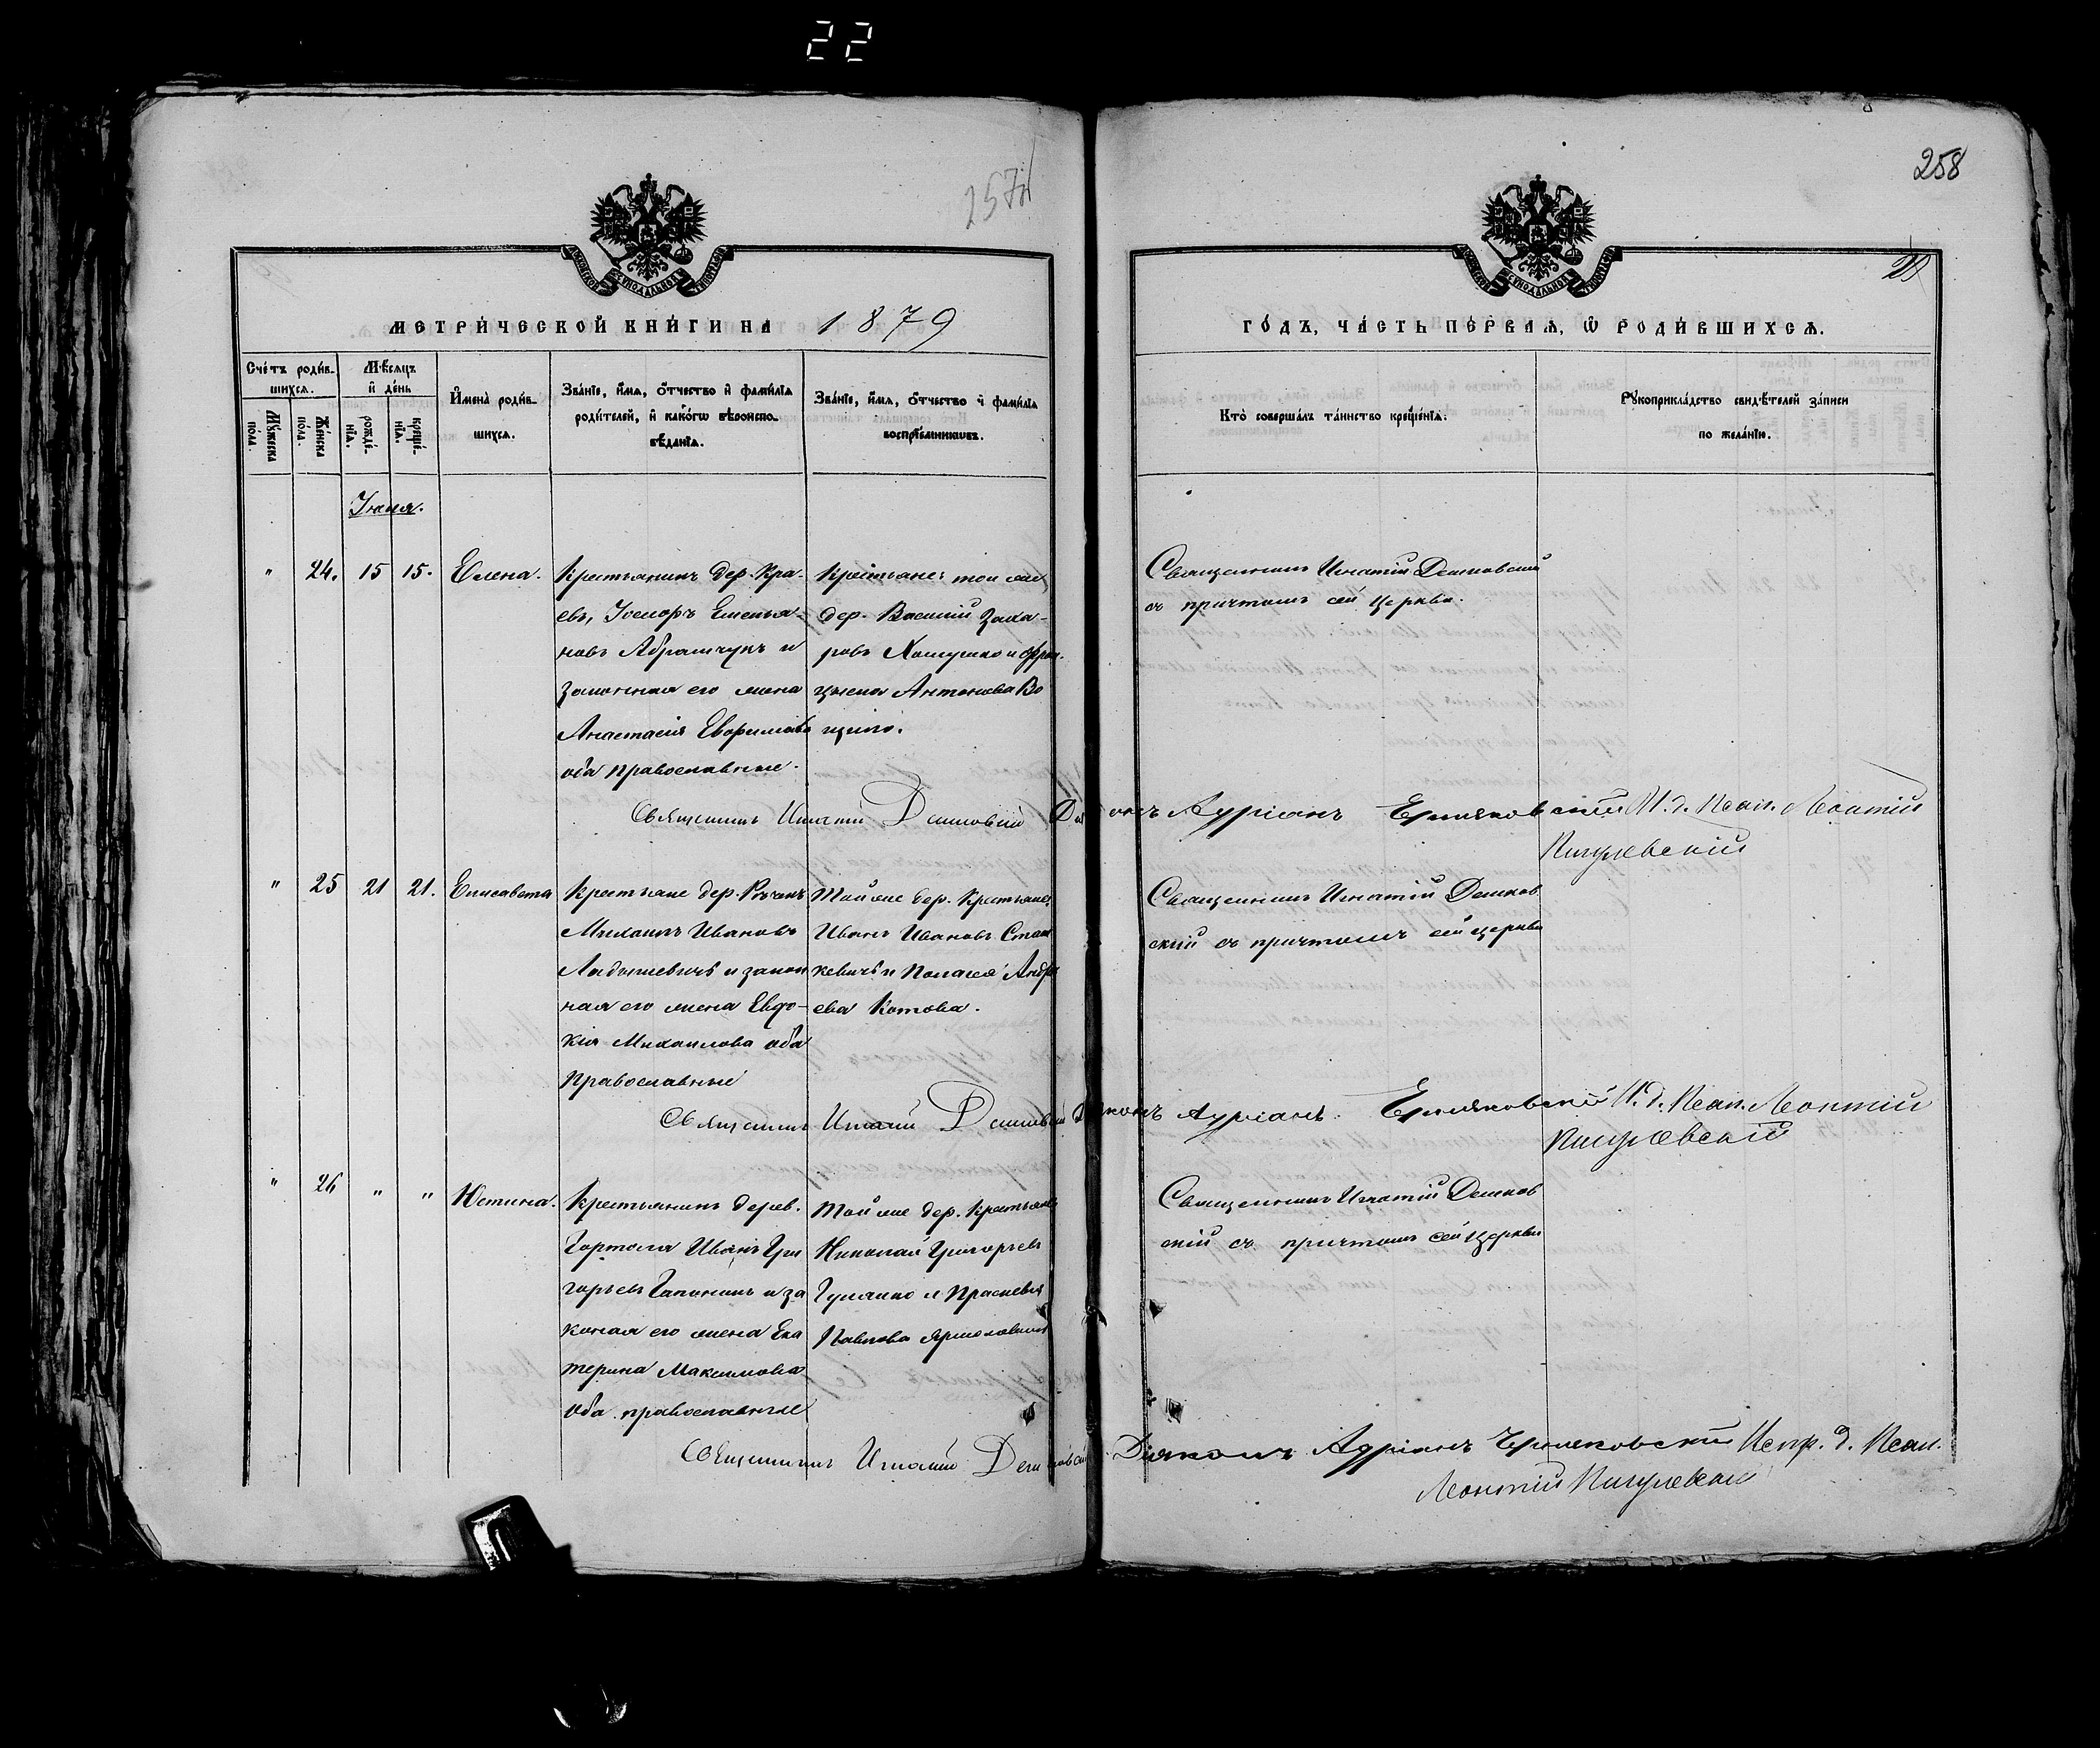 22
257
258
МЕТРИЧЕСКОЙ КНИГИ НА 1879
ГОДЪ, ЧАСТЬ ПЕРВАЯ, Ѡ РОДИВШИХСЯ.
Счетъ родив-
шихся.
Мужеска
пола.
Женска
пола.
Мѣсяцъ
и день
рожде-
нія.
креще-
нія.
Имена родив-
шихся.
Званіе, имя, отчество и фамилія
родителей, и какогѡ вѣроиспо-
вѣданія.
Званіе, имя, отчество и фамилія
воспріемниковъ.
Кто совершалъ таинство крещенія.
Рукоприкладство свидѣтелей записи
по желанію.
Іюня.
" 24. 15 15. Елена.
Крестьянинъ дер. Кра-
евъ, Іосифъ Емелья-
новъ Абрамчукъ и
законная его жена
Анастасія Евфимова
оба православные.
Крестьяне той же
дер. Василій Заха-
ровъ и
Антонова
Священникъ Игнатій Демковскій
съ причтомъ сей церкви.
Священникъ Игнатій Діаконъ Адріанъ И. д. Псал. Леонтій
" 25 21 21. Елисавета
Крестьяне дер.
Михаилъ Ивановъ
и закон
ная его жена Евдо-
кія Михаилова оба
православные
Той же дер. Крестьяне
Иванъ Ивановъ Стан
кевичъ и Пелагея Андре
ева Котова.
Священникъ Игнатій Демков
скій съ причтомъ сей церкви
Священникъ Игнатій Діаконъ Адріанъ. И. д. Псал. Леонтій
" 26 " " Юстина.
Крестьянинъ дерев.
Иванъ Гри
горьевъ и за
коная его жена Ека
терина Максимова
Оба православные
Той же дер. Крестьяне
Николай Григорьевъ
и Прасковья
Павлова
Священникъ Игнатій Демков
скій съ причтомъ сей церкви
Священникъ Игнатій Діаконъ Адріанъ Испр. д. Псал.
Леонтій